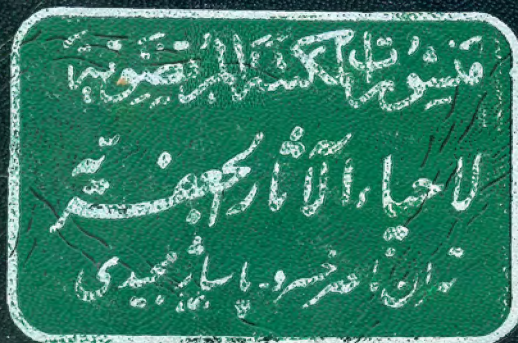 منشورات المكتبة المرتضوية
لاحياء الآثار الجعفرية
تهران ناصر خسرو. پاساژ مجیدی